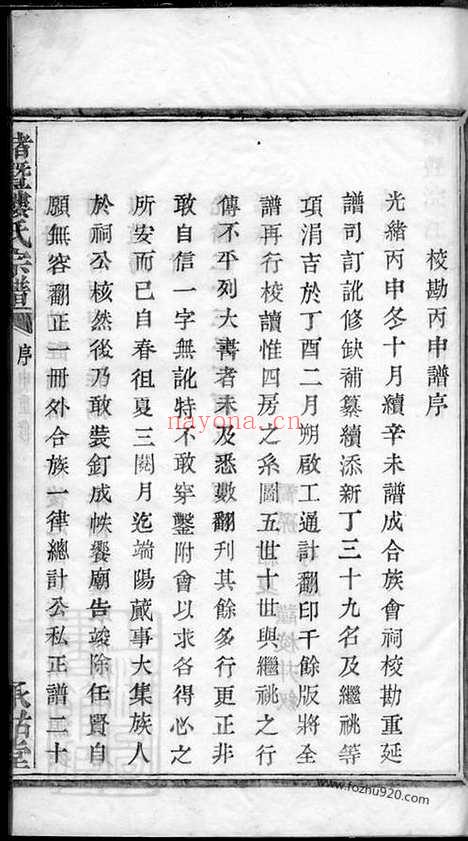 校勘丙申譜序
光緒丙申冬十月續辛未譜成合族會祠校勘重延
譜司訂訛修缺補纂續添新丁三十九名及繼祧等
項涓吉於丁酉二月朔啟工通計翻印千餘版將全
譜再行校讀惟四房之系圖五世十世與繼祧之行
傳不平列大書者未及悉數翻刊其餘多行更正非
敢自信一字無訛特不敢穿鑿附會以求各得心之
所安而已自春徂夏三閱月迄端陽蕆事大集族人
於祠公核然後乃敢裝釘成帙饗廟告竣除任賢自
願無容翻正一冊外合族一律總計公私正譜二十
諸暨樓氏宗譜
序
承祜堂
nayona.cn
www.fozhu920.com